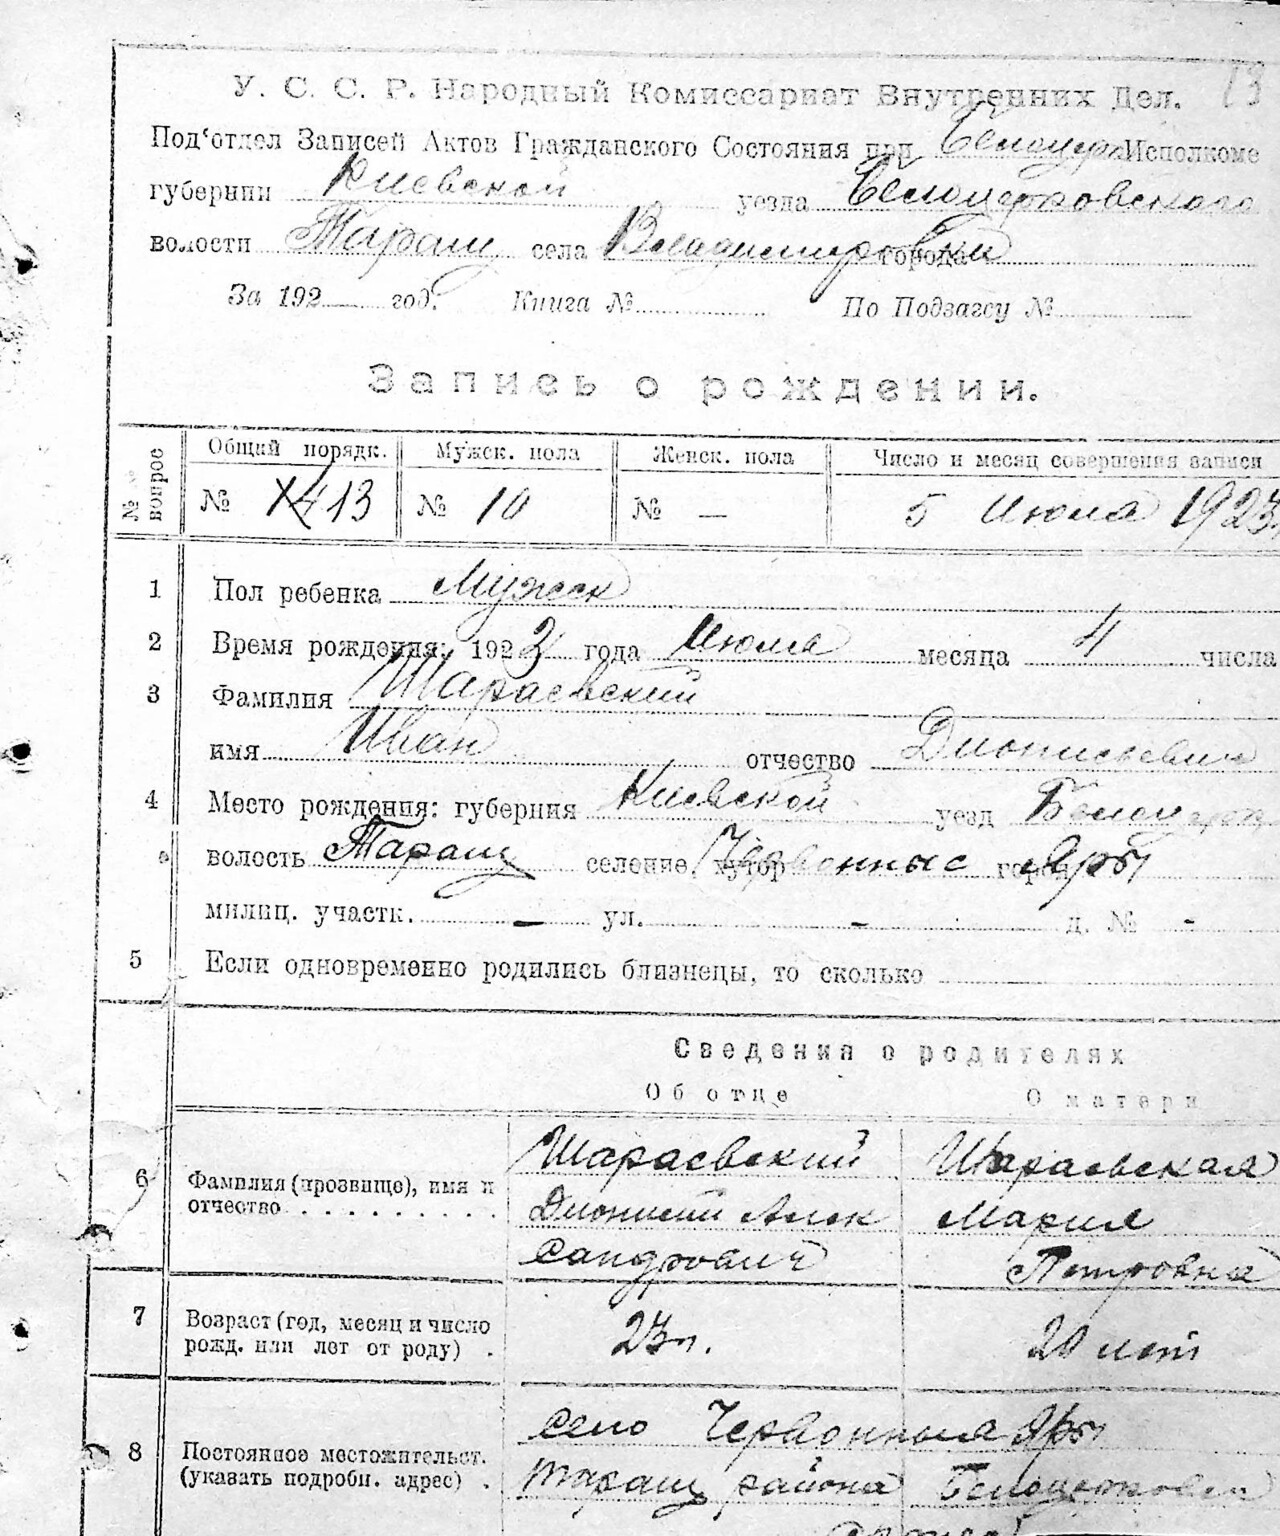 13
У. С. С. Р. Народный Комиссариат Внутренних Дел.
Под‘отдел Записей Актов Гражданского Состояния при Белоцерк Исполкоме
губернии Киевской уезда Белоцерковского
волости Таращ села Владимировки города
За 192 — год. Книга № По Подзагсу №
Запись о рождении.
№ вопрос Общий порядк. Мужск. пола Женск. пола Число и месяц совершения записи
№ 13 № 10 № — 5 Июля 1923.
1 Пол ребенка Мужск
2 Время рождения: 1923 года Июля месяца 4 числа
3 Фамилия Шараевский
имя Иван отчество Дионисьевич
4 Место рождения: губерния Киевской уезд Белоцерк
волость Таращ селение, хутор Червонные город Яры
милиц. участк. — ул. - д. № -
5 Если одновременно родились близнецы, то сколько
Сведения о родителях
Об отце О матери
6 Фамилия (прозвище), имя и отчество . . . . . . . . .
Шараевский Шараевская
Дионисий Алек Мария
сандрович Петровна
7 Возраст (год, месяц и число рожд. или лет от роду) .
23 л. 20 лет
8 Постоянное местожительст. (указать подробн. адрес) .
село Червонныя Яры
Таращ района Белоцерковск